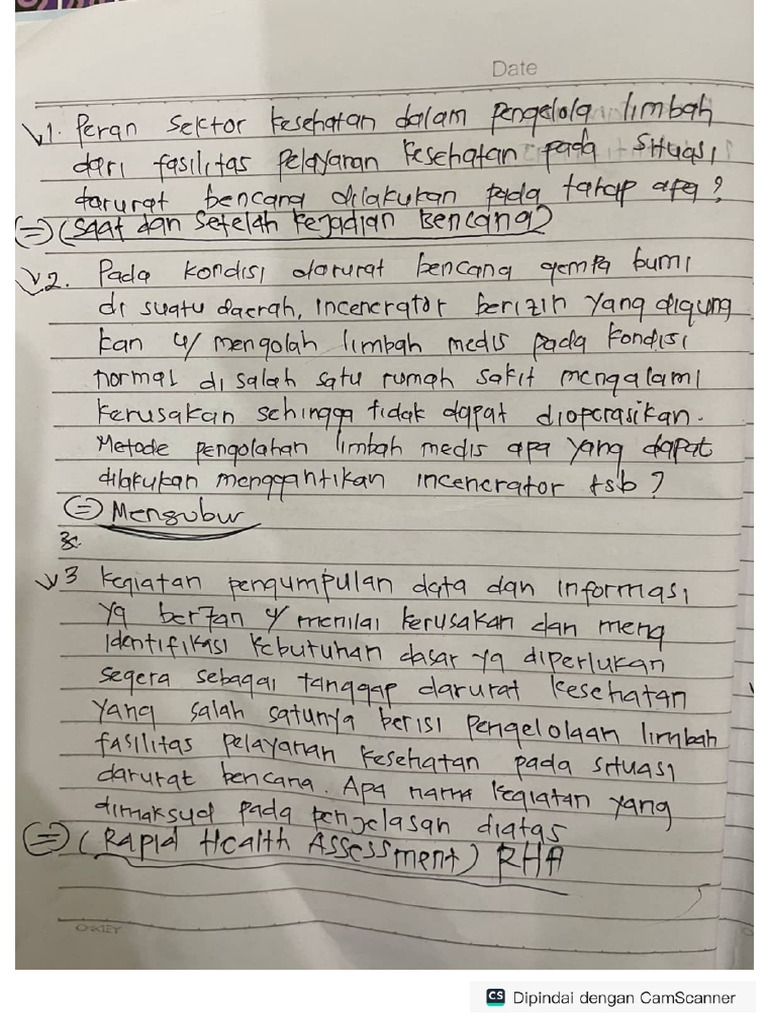 Date
1. Peran Sektor Kesehatan dalam pengelola limbah
dari fasilitas pelayanan kesehatan pada situasi
darurat bencana dilakukan pada tahap apa?
=> (Saat dan setelah kejadian Bencana)
2. Pada kondisi darurat bencana gempa bumi
di suatu daerah, incenerator berizin yang digung
kan u/ mengolah limbah medis pada kondisi
normal di salah satu rumah sakit mengalami
kerusakan sehingga tidak dapat dioperasikan.
Metode pengolahan limbah medis apa yang dapat
dilakukan menggantikan incenerator tsb?
=> Mengubur
3 kegiatan pengumpulan data dan informasi
yg bertan u/ menilai kerusakan dan meng
identifikasi kebutuhan dasar yg diperlukan
segera sebagai tanggap darurat kesehatan
yang salah satunya berisi pengelolaan limbah
fasilitas pelayanan kesehatan pada situasi
darurat bencana. Apa nama kegiatan yang
dimaksud pada penjelasan diatas
=> (Rapid Health Assessment) RHA
OKEY
CS Dipindai dengan CamScanner